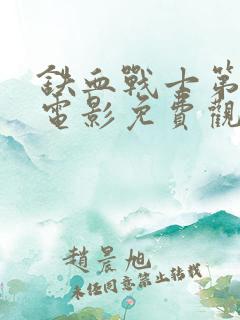 鉄血戰士第
電影免費觀
趙晨旭
未任同意禁止轉載